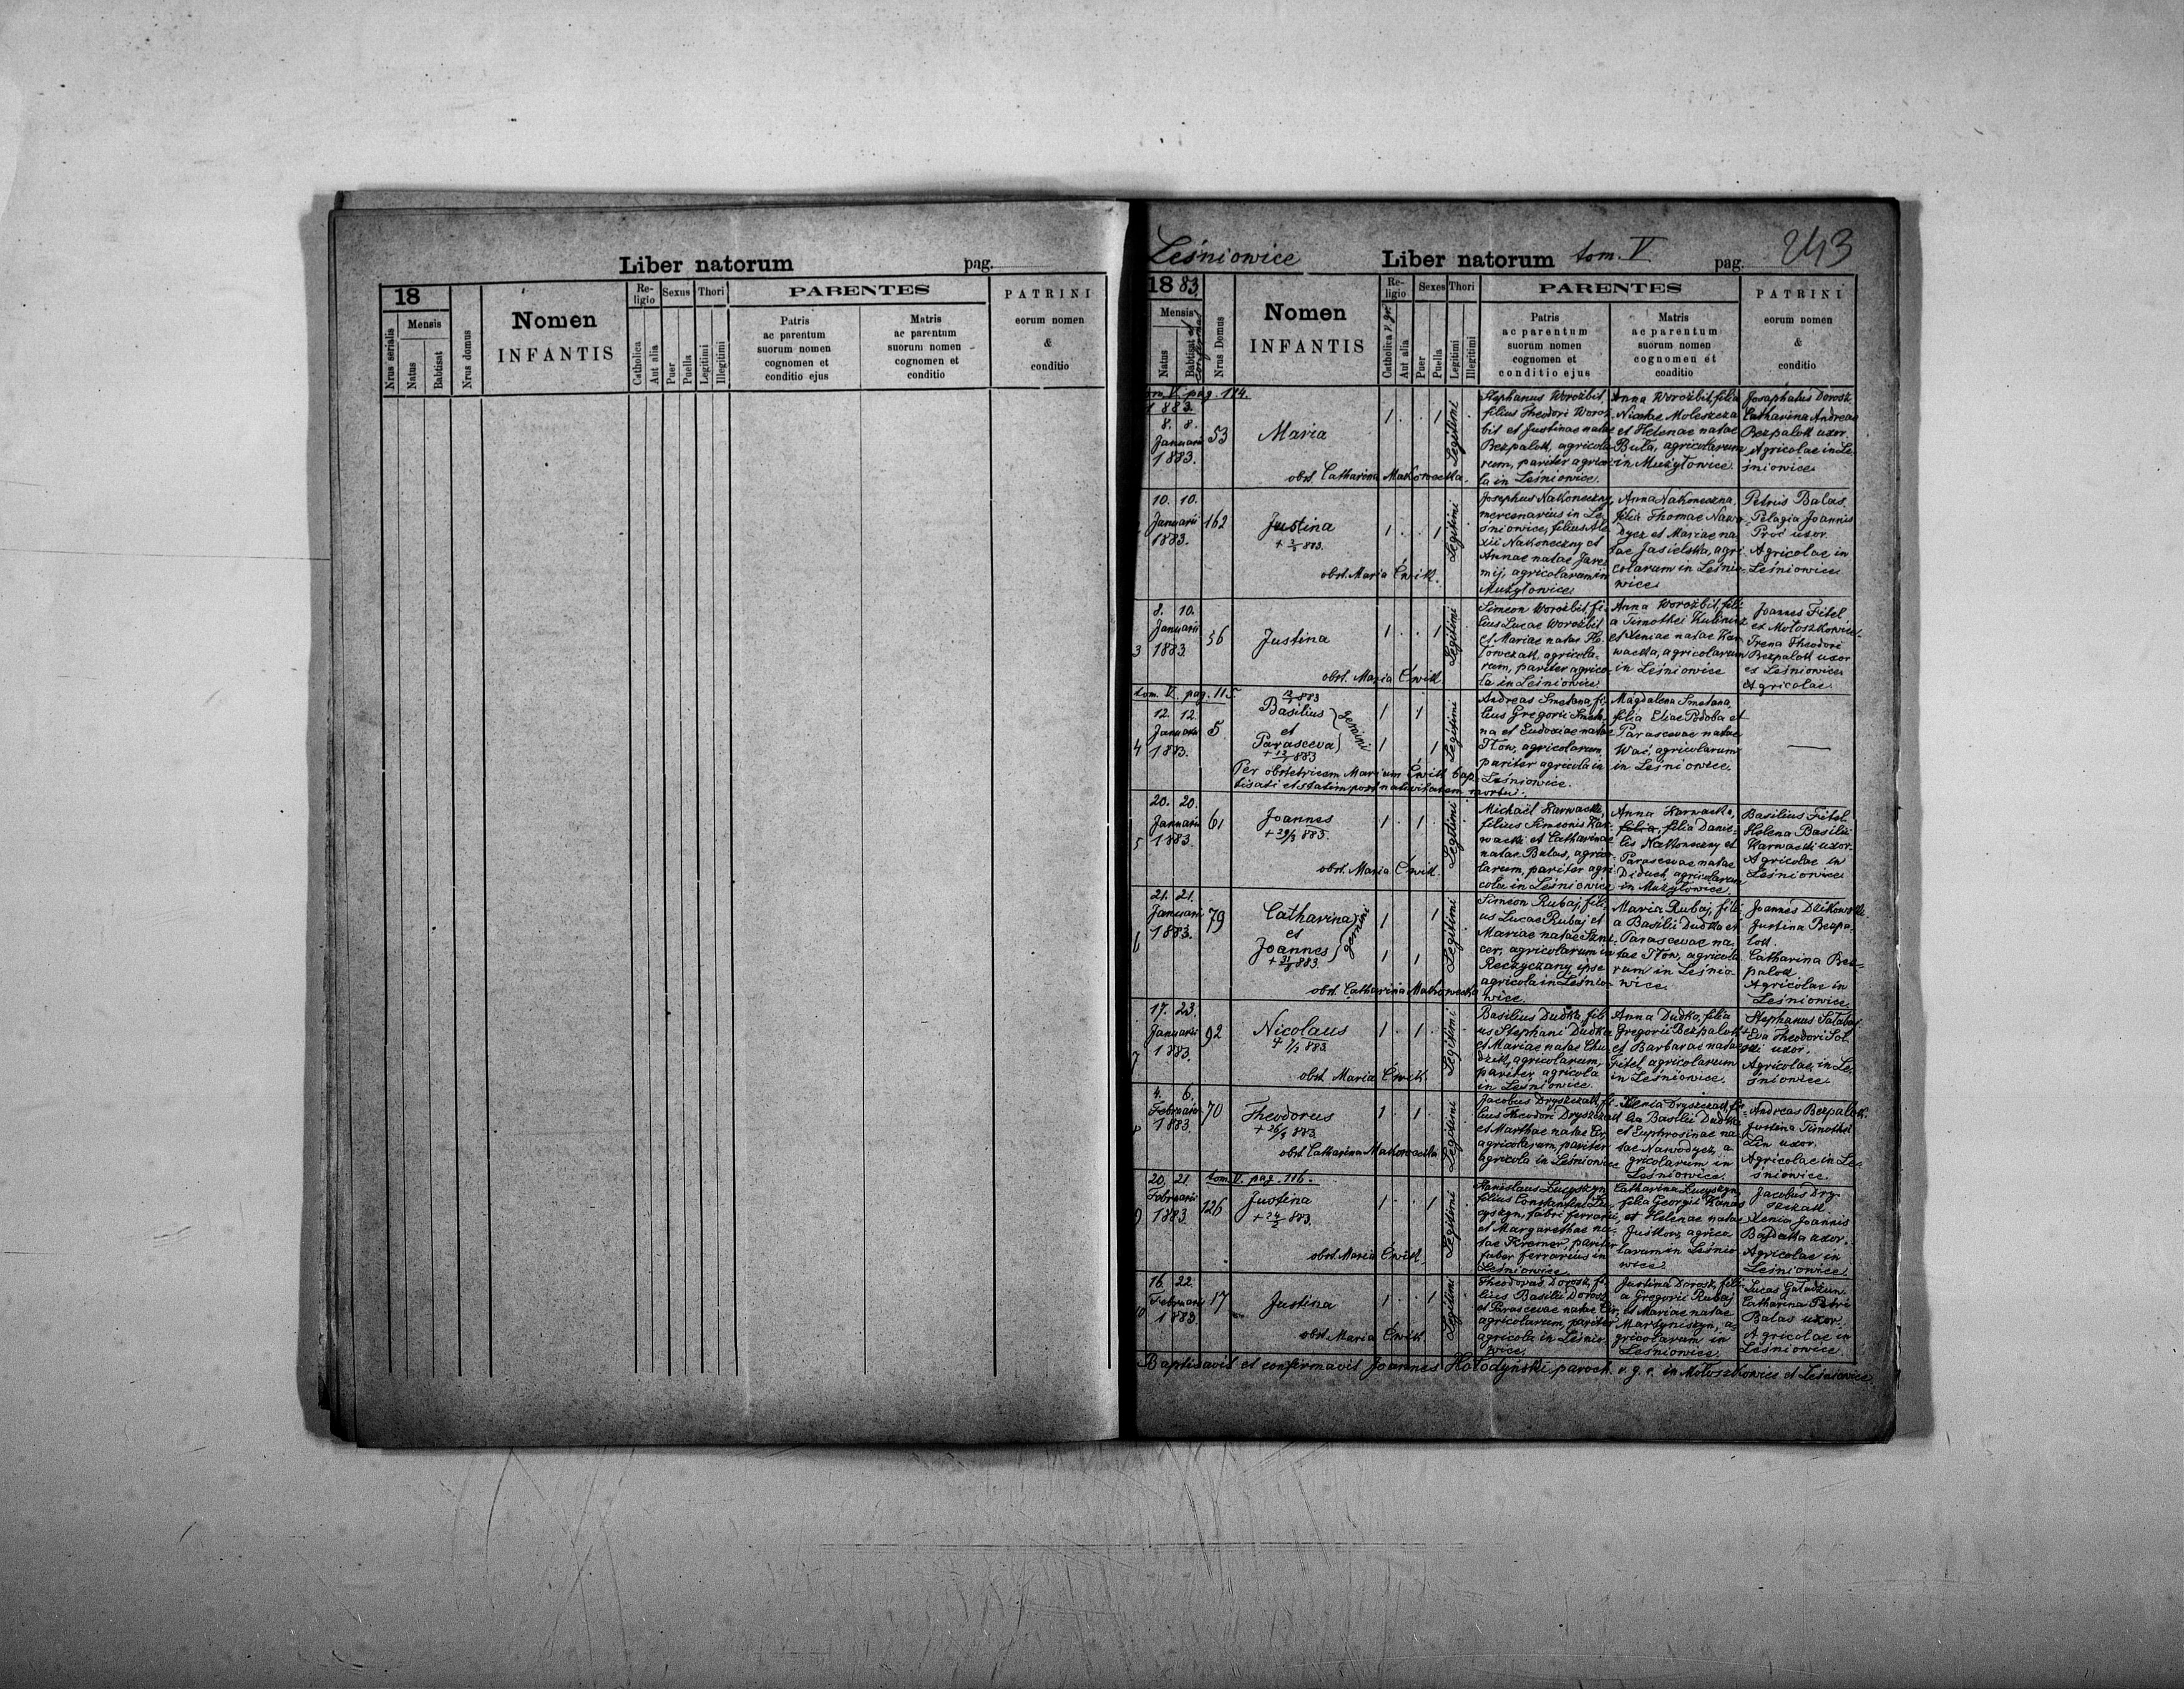 Liber natorum pag.
18
Nrus serialis
Mensis
Natus
Babtisat
Nrus domus
Nomen
INFANTIS
Religio
Catholica
Aut alia
Sexus
Puer
Puella
Thori
Legitimi
Illegitimi
PARENTES
Patris
ac parentum
suorum nomen
cognomen et
conditio ejus
Matris
ac parentum
suorum nomen
cognomen et
conditio
PATRINI
eorum nomen
&
conditio
Leśniowice Liber natorum tom. V. pag. 243
1883.
Mensis
Natus
Babtisat et
confirmat
Nrus Domus
Nomen
INFANTIS
Religio
Catholica r. gr.
Aut alia
Sexes
Puer
Puella
Thori
Legitimi
Illegitimi
PARENTES
Patris
ac parentum
suorum nomen
cognomen et
conditio ejus
Matris
ac parentum
suorum nomen
cognomen et
conditio
PATRINI
eorum nomen
&
conditio
tom. V. pag. 114.
1883.
8. 8.
Januarii
1883.
53
Maria
obst. Catharina Makowecka.
1 . . 1 .
Legitimi
Stephanus Worożbit,
filius Theodori Worożbit
et Justinae natae
Bezpalok, agricolarum,
pariter agricola
in Leśniowice.
Anna Worożbit, filia
Nicolae Moleszcza
et Helenae natae
Buła, agricolarum
in Mużyłowice.
Josaphatus Dorosz
Catharina Andreae
Bezpalok uxor.
Agricolae in Leśniowice
10. 10.
Januarii
1883.
162
Justina
obst. Maria Ćwik.
1 . . 1 .
Legitimi
Josephus Nakoneczny,
mercenarius in Leśniowice,
filius Alexii
Nakoneczny et
Annae natae Jaremij,
agricolarum in
Mużyłowice
Anna Nakoneczna,
filia Thomae Nawodycz
et Mariae natae
Jasielska, agricolarum
in Leśniowice
Petrus Balas
Pelagia Joannis
Próć uxor.
Agricolae in
Leśniowice
3
8. 10.
Januarii
1883.
36
Justina
obst. Maria Ćwik
1 . . 1
Legitimi
Simeon Worożbit, filius
Lucae Worożbit
et Mariae natae
agricolarum,
pariter agricola
in Leśniowice
Anna Worożbit, filia
Timothei
et Xeniae natae Karwacka,
agricolarum
in Leśniowice
Joannes Fitel
ex Mołoszkowice.
Irena Theodori
Bezpalok uxor
ex Leśniowice
Agricolae
tom. V. pag. 115
4
12. 12.
Januarii
1883.
5
Basilius
et
Parasceva
gemini
Per obstetricem Mariam Ćwik baptisati
et statim post nativitatem mortui.
Legitimi
Andreas Smetana, filius
Gregorii Smetana
et Eudoxiae natae
Tłow, agricolarum,
pariter agricola in
Leśniowice.
Magdalena Smetana,
filia Eliae Podoba et
Parascevae natae
Wać, agricolarum
in Leśniowice.
5
20. 20.
Januarii
1883.
61
Joannes
+ 29/3 883.
obst. Maria Ćwik.
1 . 1 .
Legitimi
Michaël Karwacki,
filius Simeonis Karwacki
et Catharinae
natae Balas, agricolarum,
pariter agricola
in Leśniowice
Anna Karwacka,
filia, filia Danielis
Nakoneczny et
Parascevae natae
Diduch, agricolarum
in Mużyłowice.
Basilius Fitel
Helena Basilii
Karwacki uxor.
Agricolae in
Leśniowice
6
21. 21.
Januarii
1883.
79
Catharina
et
Joannes
gemini
obst. Catharina Makowecka
Legitimi
Simeon Rubaj, filius
Lucae Rubaj et
Mariae natae
agricolarum in
Reczyczany, ipse
agricola in Leśniowice.
Maria Rubaj, filia
Basilii Dudka et
Parascevae natae
Tłow, agricolarum
in Leśniowice.
Joannes Dzikowski.
Justina Bezpalok.
Catharina Bezpalok
Agricolae in
Leśniowice
7
17. 23.
Januarii
1883.
92
Nicolaus
obst. Maria Ćwik.
1 . 1 .
Legitimi
Basilius Dudka, filius
Stephani Dudka
et Mariae natae Chudzik,
agricolarum,
pariter agricola
in Leśniowice.
Anna Dudka, filia
Gregorii Bezpalok
et Barbarae natae
Fitel, agricolarum
in Leśniowice.
Stephanus
Eva Theodori
uxor.
Agricolae in Leśniowice
4. 6.
Februarii
1883.
70
Theodorus
obst. Catharina Makowecka
1 . 1 .
Legitimi
Jacobus Dryszczak, filius
Theodori Dryszczak
et Marthae natae
agricolarum, pariter
agricola in Leśniowice
Xenia Dryszczak, filia
Basilii Dudka
et Euphrosinae natae
Nawodycz, agricolarum
in
Leśniowice.
Andreas Bezpalok.
Justina Timothei
uxor.
Agricolae in Leśniowice
9
20. 21.
Februarii
1883.
tom. V. pag. 116.
126
Justina
obst. Maria Ćwik
1 . . 1
Legitimi
Stanislaus Łucyszyn
filius Constantini Łucyszyn,
fabri ferrarii,
et Margarethae natae
Kremer, pariter
faber ferrarius in
Leśniowice
Catharina Łucyszyn,
filia Georgii
et Helenae natae
agricolarum
in Leśniowice
Jacobus Dryszczak
Xenia Joannis
uxor.
Agricolae in
Leśniowice.
10
16. 22.
Februarii
1883.
17
Justina
obst. Maria Ćwik
1 . . 1
Legitimi
Theodorus Dorosz, filius
Basilii Dorosz
et Parascevae natae
agricolarum, pariter
agricola in Leśniowice.
Justina Dorosz, filia
Gregorii Rubaj
et Mariae natae
Martyniszyn, agricolarum
in
Leśniowice.
Lucas
Catharina Petri
Balas uxor.
Agricolae in
Leśniowice
Baptisavit et confirmavit Joannes Hołodyński paroch. r. g. c. in Mołoszkowice et Leśniowice